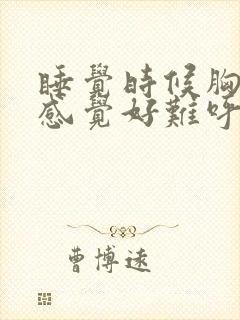 睡覺時候胸
感覺好難呼
曹博遠